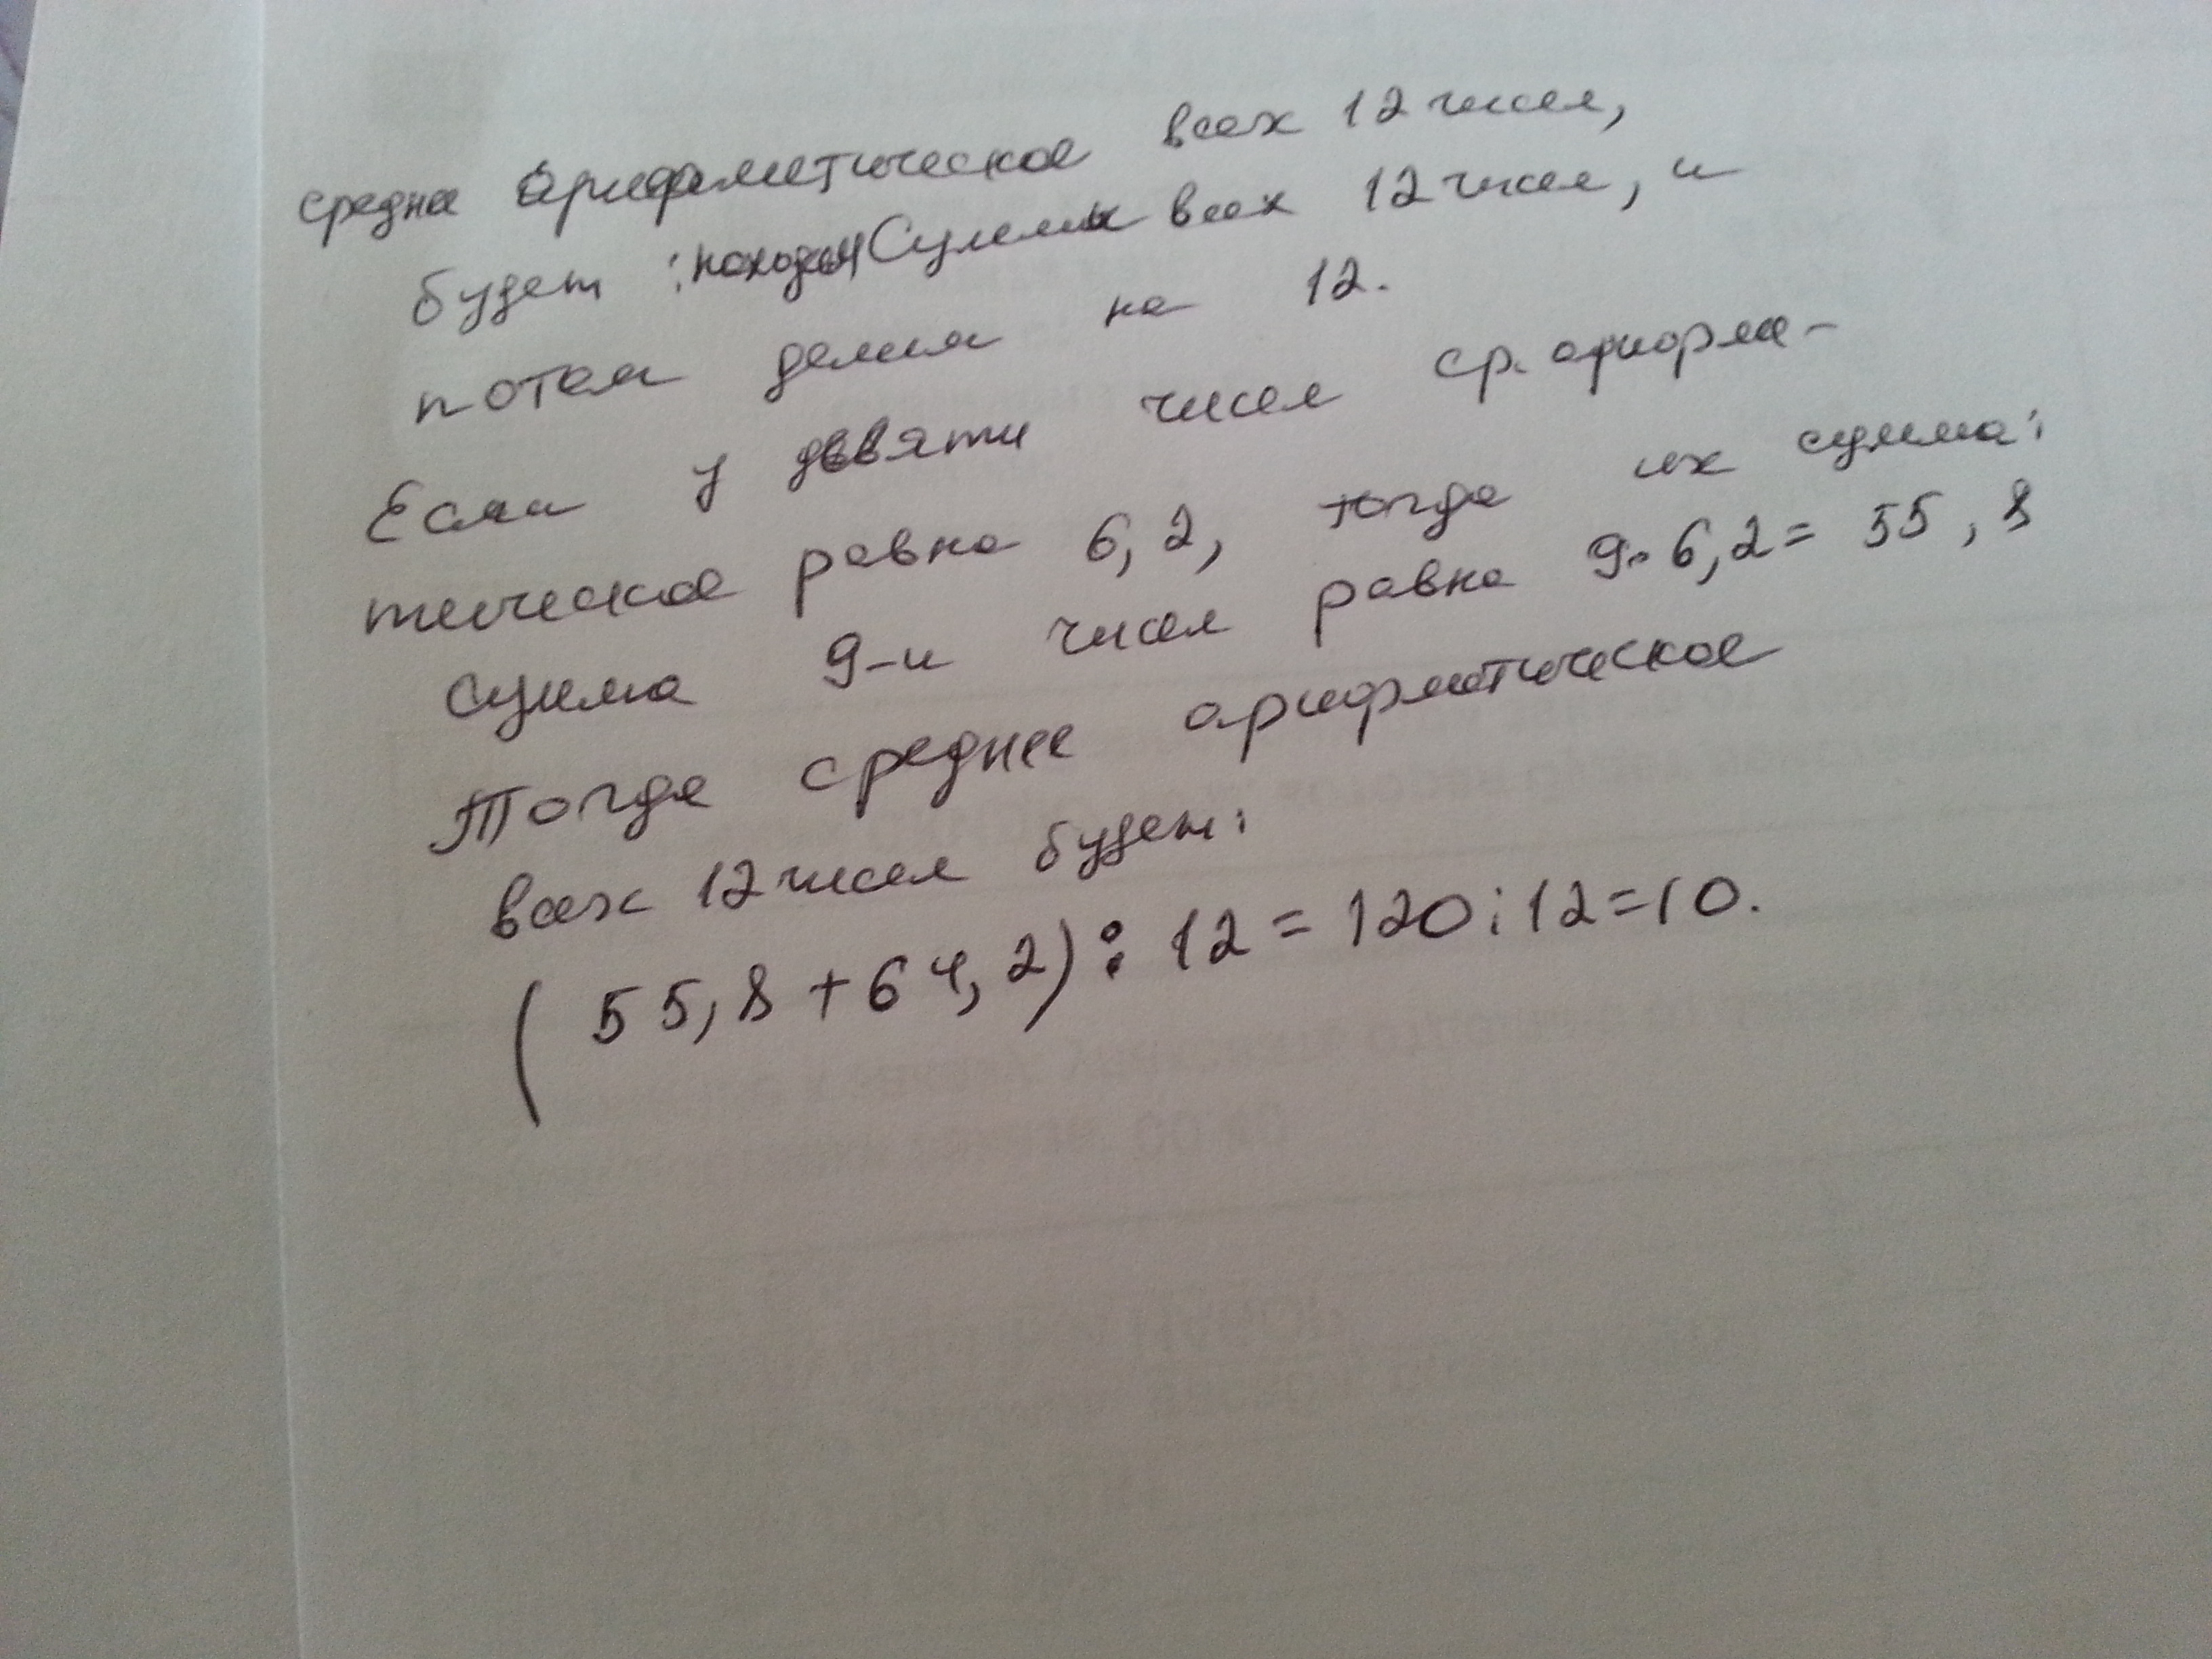 средне арифметическое всех 12 чисел,
будет : находим Сумму всех 12 чисел, и
потом делим на 12.
Если у девяти чисел ср. арифме-
тическое равно 6,2, тогда их сумма:
Сумма 9-и чисел равна 9·6,2= 55,8
Тогда среднее арифметическое
всех 12 чисел будет:
(55,8+64,2):12=120:12=10.